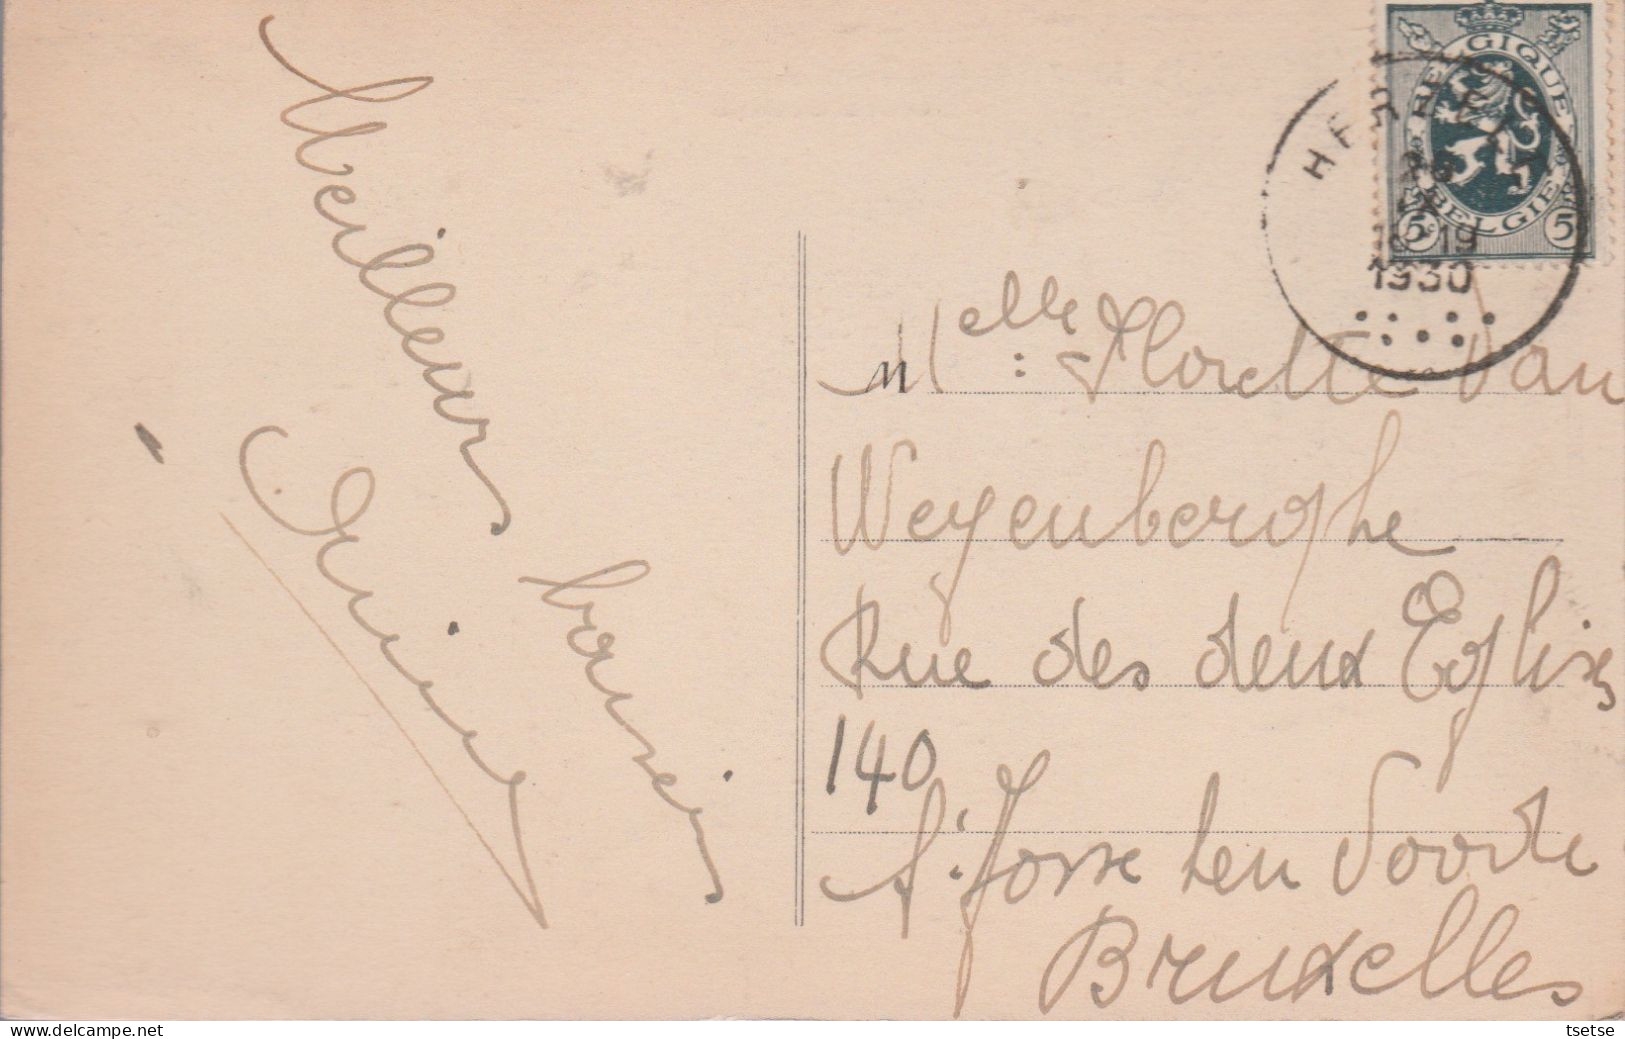 Meilleurs baisers
BELGIQUE
BELGIE
5c 5c
19-19
1930
Melle: Florette Van
Weyenberghe
Rue des deux Eglises
140
St Josse ten Noode
Bruxelles
tsetse